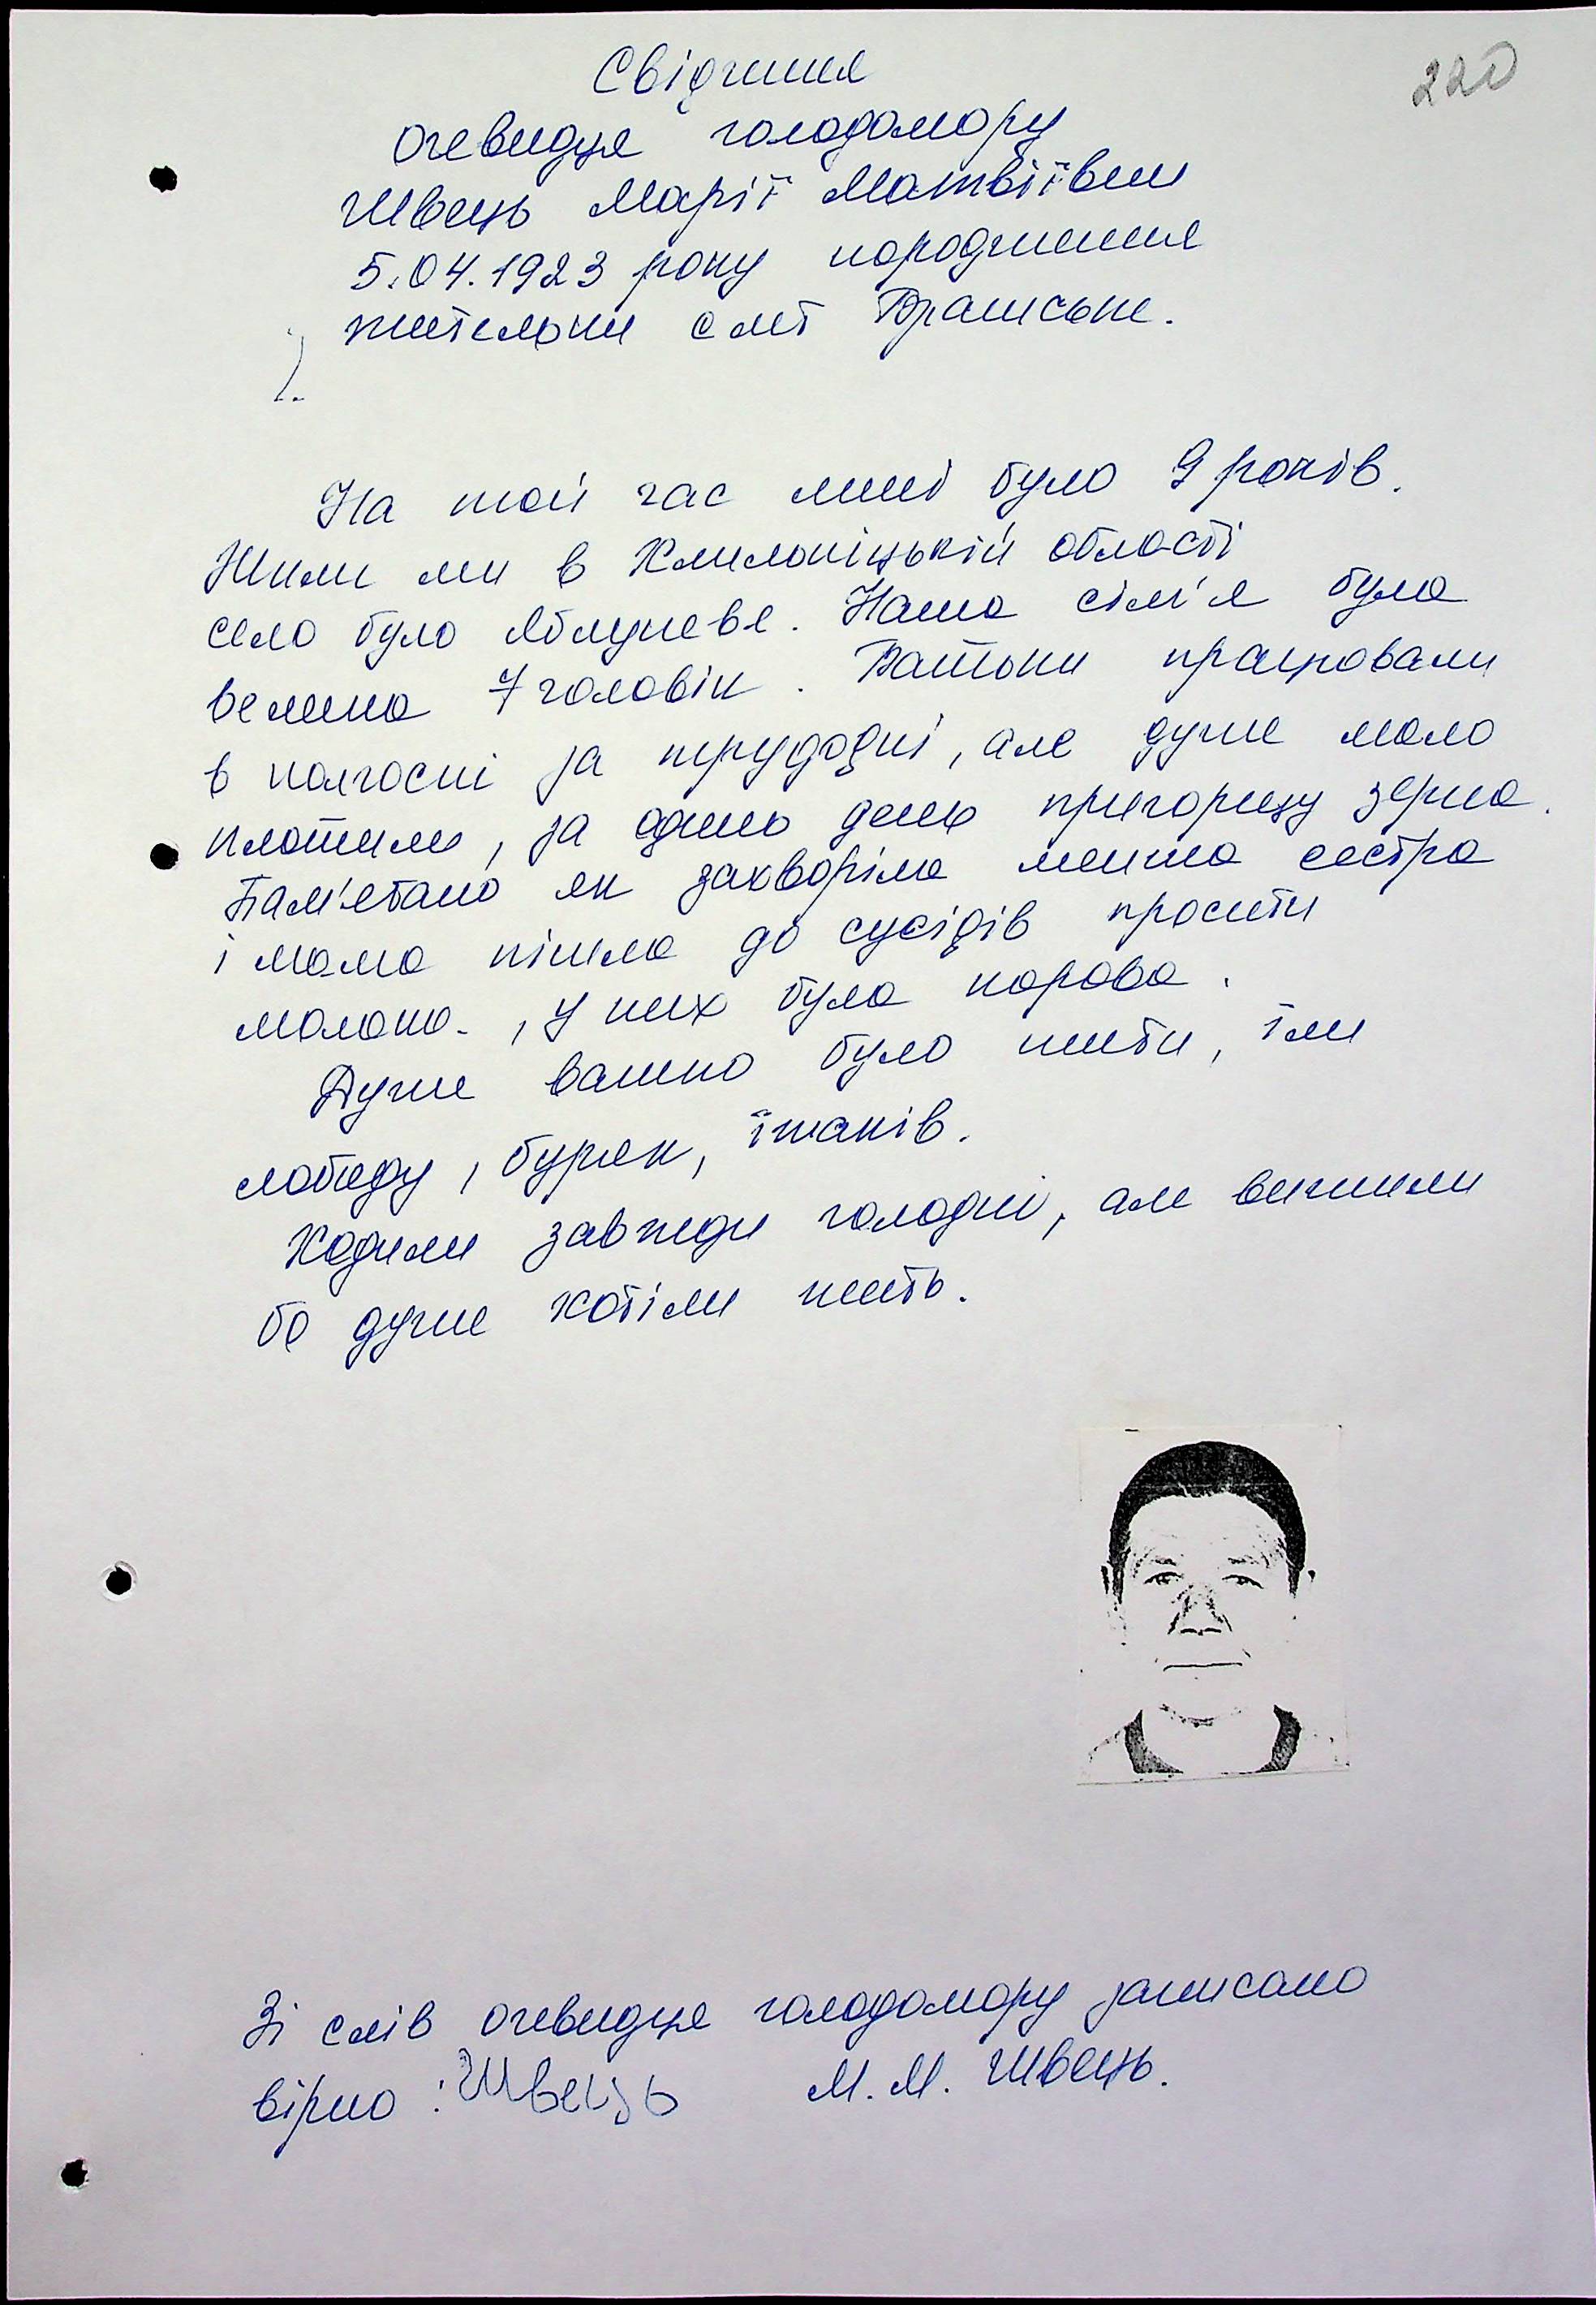 220
Свідчення
очевидця голодомору
Швець Марії Матвіївни
5.04.1923 року народження
жительки смт Братське.
На той час мені було 9 років.
Жили ми в Хмельніцькій області
село було Яблуневе. Наша сім'я була
велика 7 чоловік. Батьки працювали
в колгоспі за трудодні, але дуже мало
платили, за один день пригорщу зерна.
Пам'ятаю як захворіла менша сестра
і мама пішла до сусідів просити
молока, у них була корова.
Дуже важко було жити, їли
лободу, буряк, їжаків.
Ходили завжди голодні, але вижили
бо дуже хотіли жить.
Зі слів очевидця голодомору записано
вірно: Швець М.М. Швець.